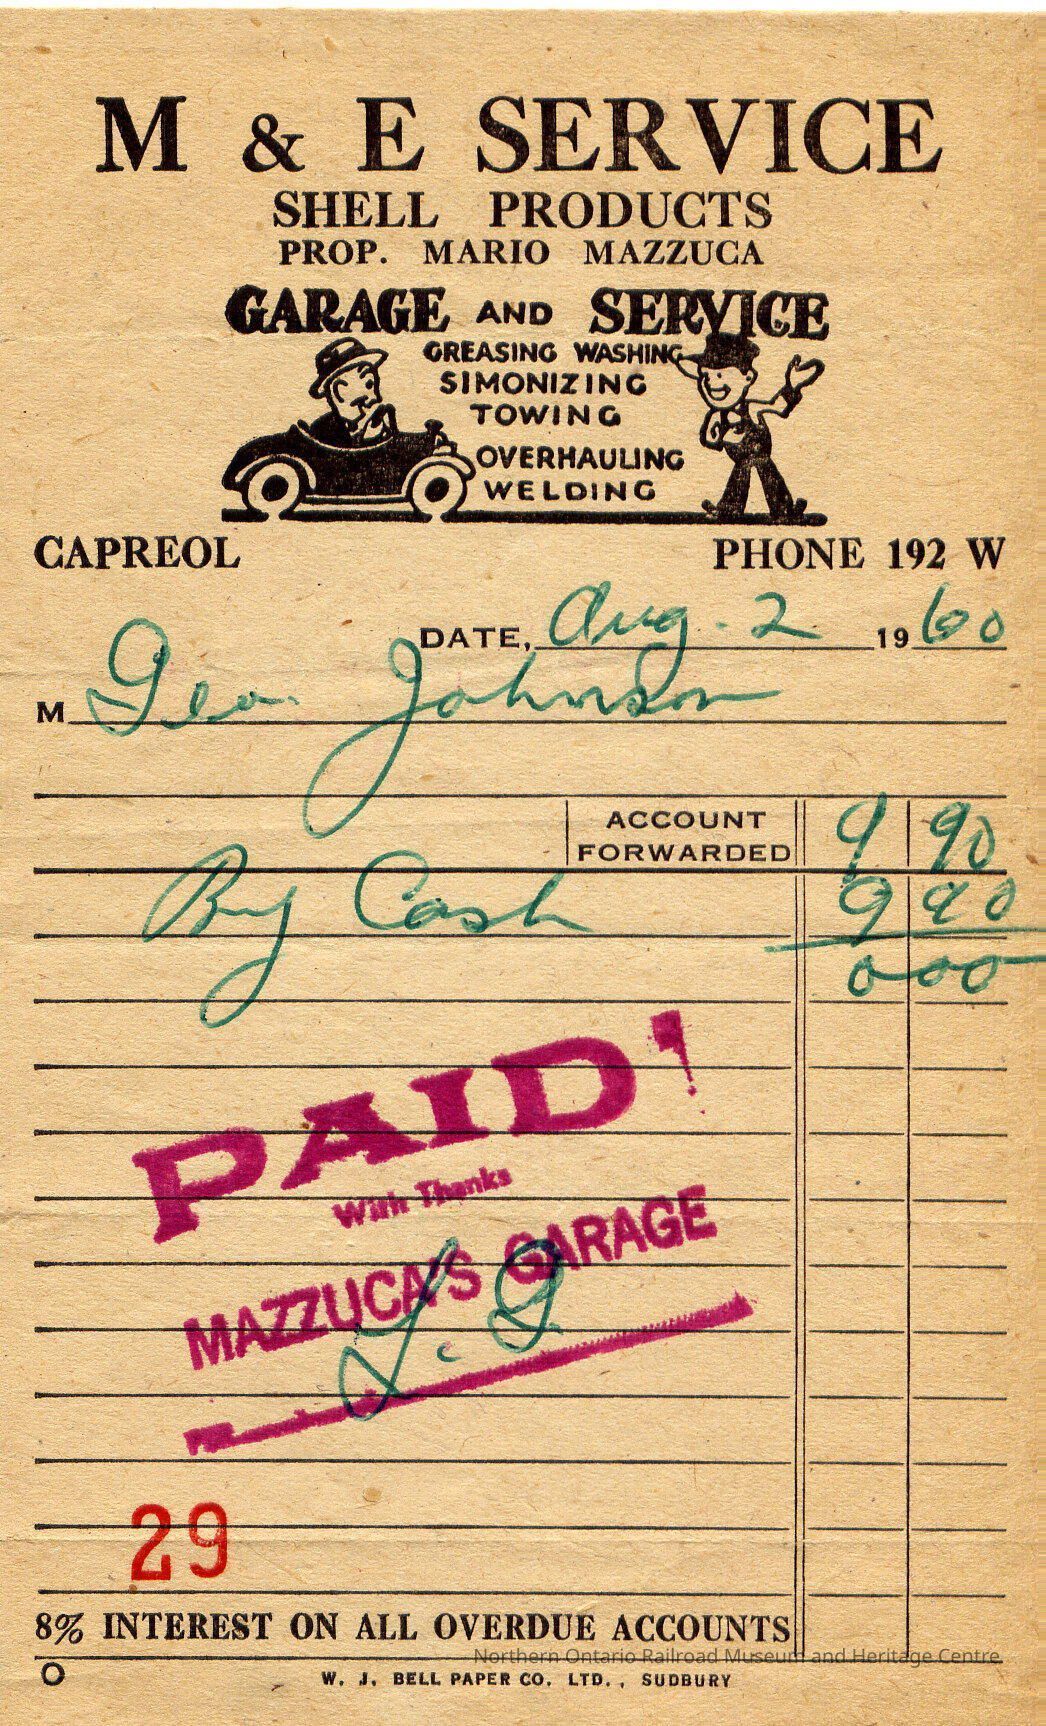 M & E SERVICE
SHELL PRODUCTS
PROP. MARIO MAZZUCA
GARAGE AND SERVICE
GREASING WASHING
SIMONIZING
TOWING
OVERHAULING
WELDING
CAPREOL PHONE 192 W
DATE, Aug. 2 1960
M Geo. Johnson
ACCOUNT FORWARDED 9 90
By Cash 9 90
0 00
PAID!
With Thanks
MAZZUCA'S GARAGE
L. G
PER
29
8% INTEREST ON ALL OVERDUE ACCOUNTS
Northern Ontario Railroad Museum and Heritage Centre
W. J. BELL PAPER CO. LTD., SUDBURY